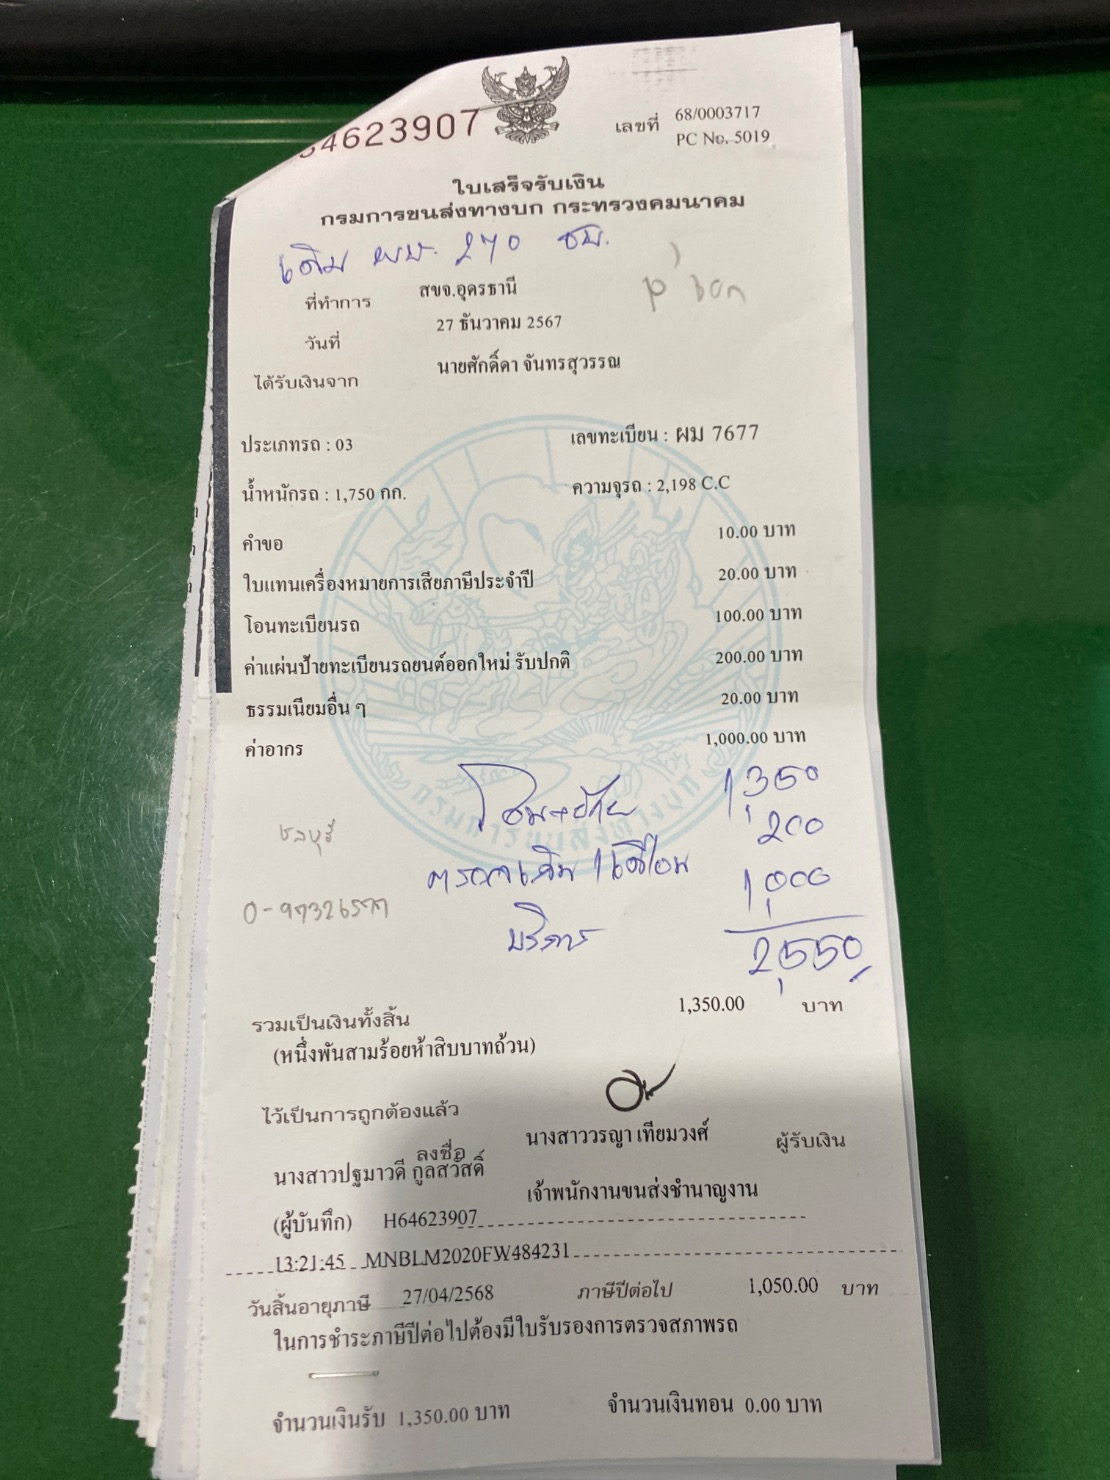 64623907
เลขที่ 68/0003717
PC No. 5019
ใบเสร็จรับเงิน
กรมการขนส่งทางบก กระทรวงคมนาคม
เดิม ผบ. 270 ชบ.
ที่ทำการ สขจ.อุดรธานี
วันที่ 27 ธันวาคม 2567
ได้รับเงินจาก นายศักดิ์ดา จันทรสุวรรณ
ประเภทรถ : 03 เลขทะเบียน : ผม 7677
น้ำหนักรถ : 1,750 กก. ความจุรถ : 2,198 C.C
คำขอ 10.00 บาท
ใบแทนเครื่องหมายการเสียภาษีประจำปี 20.00 บาท
โอนทะเบียนรถ 100.00 บาท
ค่าแผ่นป้ายทะเบียนรถยนต์ออกใหม่ รับปกติ 200.00 บาท
ธรรมเนียมอื่น ๆ 20.00 บาท
ค่าอากร 1,000.00 บาท
โอน+ย้าย 1,350
ชลบุรี
200
1,000
บริการ
2,550
กรมการขนส่งทางบก
รวมเป็นเงินทั้งสิ้น 1,350.00 บาท
(หนึ่งพันสามร้อยห้าสิบบาทถ้วน)
ไว้เป็นการถูกต้องแล้ว
ลงชื่อ นางสาววรญา เทียมวงศ์ ผู้รับเงิน
นางสาวปฐมาวดี กูลสวัสดิ์ เจ้าพนักงานขนส่งชำนาญงาน
(ผู้บันทึก) H64623907
13:21:45 MNBLM2020FW484231
วันสิ้นอายุภาษี 27/04/2568 ภาษีปีต่อไป 1,050.00 บาท
ในการชำระภาษีปีต่อไปต้องมีใบรับรองการตรวจสภาพรถ
จำนวนเงินรับ 1,350.00 บาท จำนวนเงินทอน 0.00 บาท